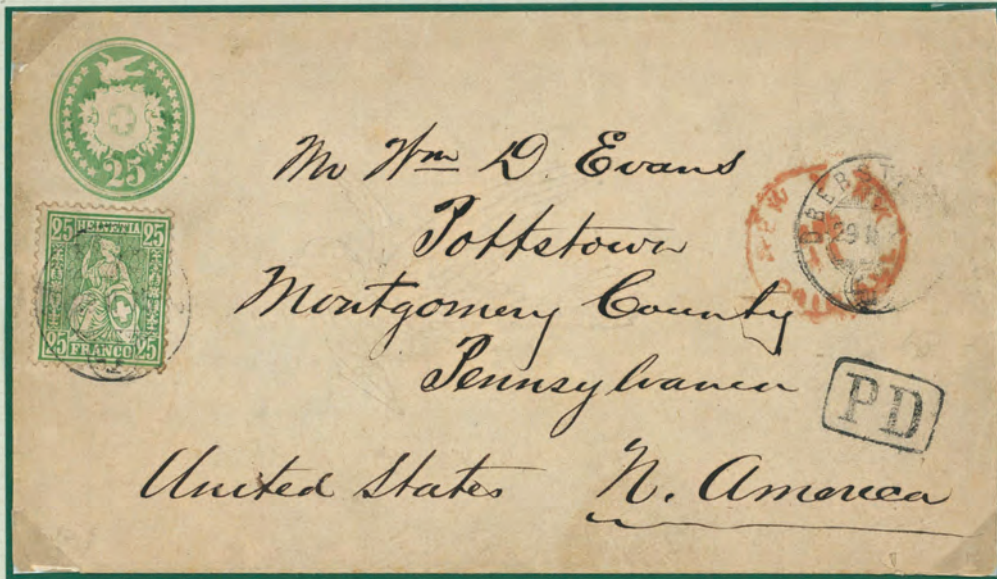 25
25 HELVETIA 25
25 FRANCO 25
Mr Wm D. Evans
Pottstown
Montgomery County
Pennsylvania
United States N. America
NEW
PAID
PD